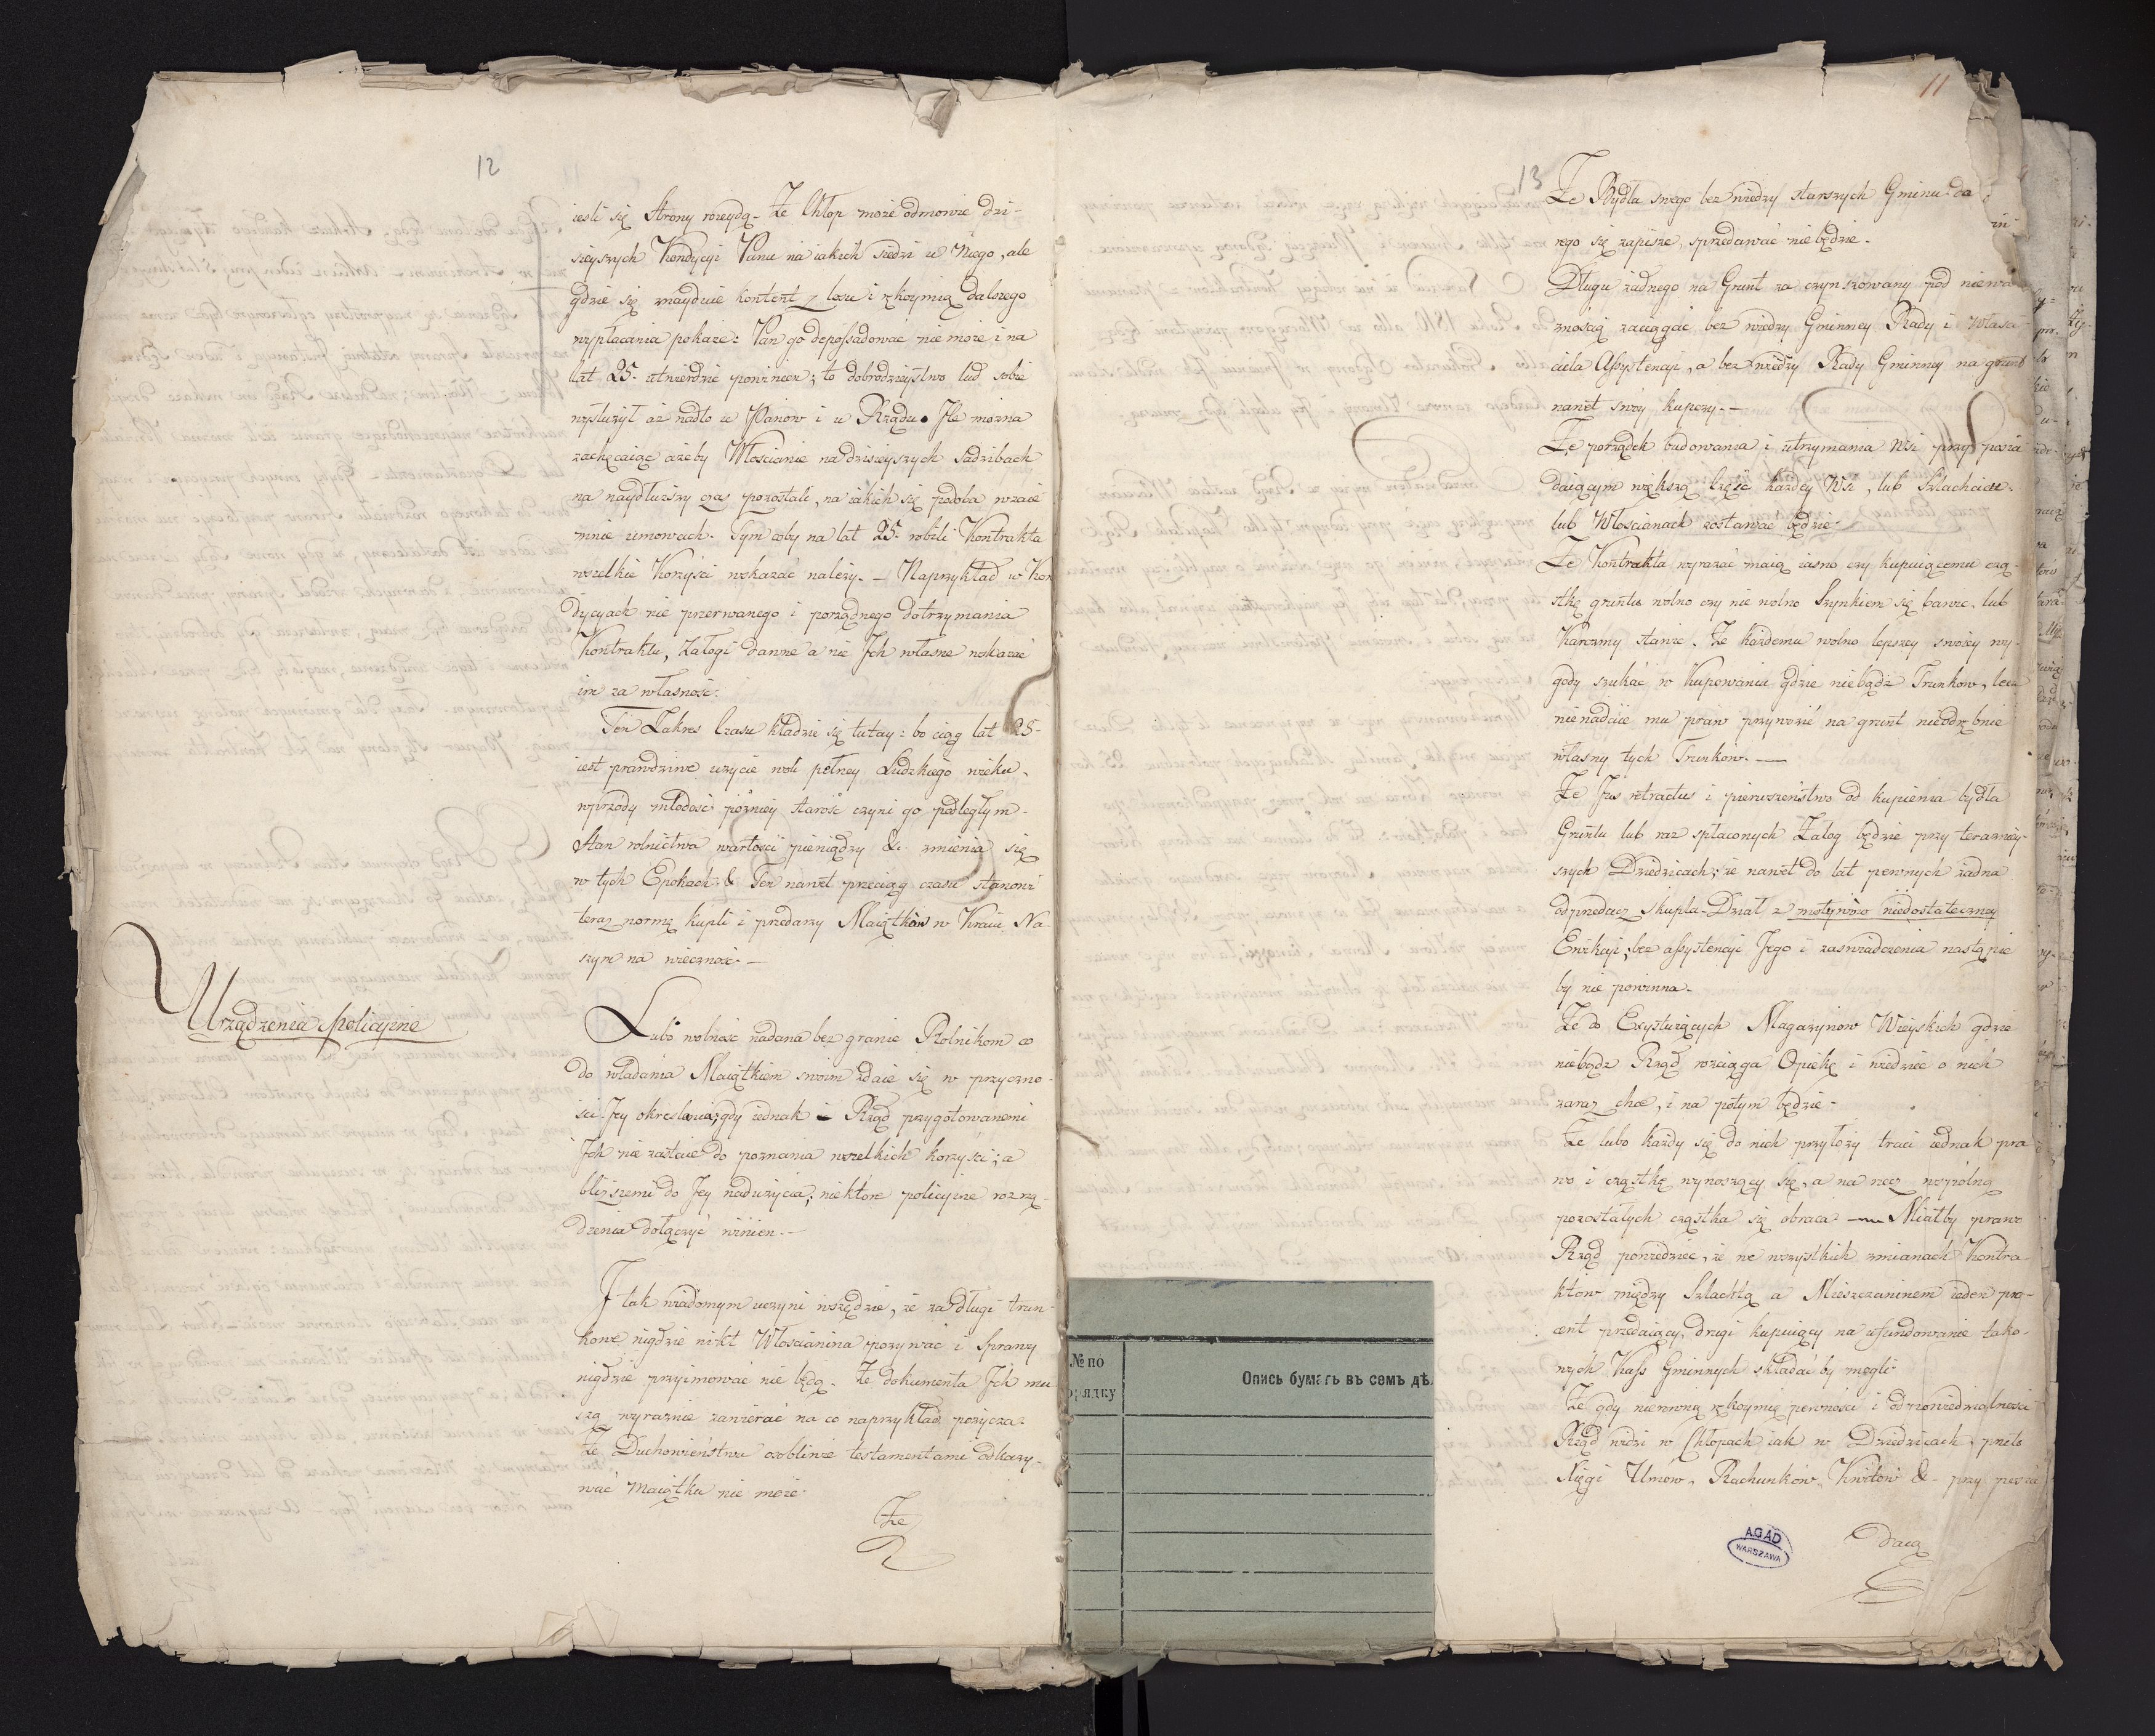 12
iesli się Strony rozeydą. Że Chłop może odmowić dzi-
sieyszych Kondycyi Panu na iakich siedzi u Niego, ale
gdzie się znayduie kontent z losu i rękoymią dalszego
wypłacania pokaże: Pan go depossadować nie może i na
lat 25. utwierdzić powinien; to dobrodzieystwo lud sobie
wysłużył aż nadto u Panow i u Rządu. Ile można
zachęcaiąc ażeby Włoscianie na dzisieyszych sadzibach
na naydłuższy czas pozostali, na iakich się podoba wzaie
mnie umowach. Tym coby na lat 25. robili Kontrakta
wszelkie Korzysci wskazać należy. — Naprzykład w Kon
dycyach nie przerwanego i porządnego dotrzymania
Kontraktu, Załogi danne a nie Ich własne wskazać
im za własność.
Ten Zakres Czasu kładzie się tutay: bo ciąg lat 25-
iest prawdziwe użycie woli pełney Ludzkiego wieku.
wprzody młodość pozniey starość czyni go podległym.
Stan rolnictwa wartości pieniędzy &c. zmienia się
w tych Epokach & Ten nawet przeciąg czasu stanowi
teraz normę kupli i przedarzy Maiątkow w Kraiu Na-
szym na wieczność. —
Urządzenia policyine
Lubo wolność nadana bez granic Rolnikom co
do władania Maiątkiem swoim zdaie się w przyczno-
ści Jey okreslania; gdy iednak i Rząd przygotowanemi
Ich nie zastaie do poznania wszelkich korzysci; a
bliższemi do Jey nadużycia; niektore policyine rozrzą-
dzenia dołączyć winien. —
I tak wiadomym uczyni wszędzie, że za Długi trun-
kowe nigdzie nikt Włoscianina pozywać i Sprawy
nigdzie przyimować nie będą. Że dokumenta Ich mu
szą wyraznie zawierać na co naprzykład pożycza:
Że Duchowieństwu osobliwie testamentami odkazy-
wać Maiątku nie może.
Że
11
13
Że Bydła swego bez wiedzy starszych Gminu do
rego się zapisze, sprzedawać nie będzie.
Długu żadnego na Grunt za czynszowany pod nieważ
znoscią zaciągać bez wiedzy Gminney Rady i Własci-
ciela Assystencyi, a bez wiedzy Rady Gminney na grunt
nawet swoy kupczy. —
Że porządek budowania i utrzymania Wsi przy posia
daiącym większą część każdey Wsi, lub Szlachcicu.
lub Włoscianach zostawać będzie.
Że Kontrakta wyrazać maią iasno czy kupuiącemu czą-
stkę gruntu wolno czy nie wolno Szynkiem się bawić, lub
Karczmy stawić. Że każdemu wolno lepszey swoiey wy-
gody szukać w Kupowaniu gdzie niebądz Trunkow, lecz
nienadaie mu praw przywozić na grunt nieodrębnie
własny tych Trunkow. —
Że Jus retractus i pierwszeństwo od kupienia bydła
Gruntu lub raz spłaconych Załog będzie przy teraznieу-
szych Dziedzicach; że nawet do lat pewnych żadna
odprzedarz skupla-Dział z motywow niedostateczney
Ewikcyi, bez assystencyi Jego i zaswiadczenia nastąpić
by nie powinna.
Że do Exystuiących Magazynow Wieyskich gdzie
niebądz Rząd rozciąga Opiekę i wiedzieć o nich
zaraz chce, i na potym będzie.
Że lubo każdy się do nich przyłoży traci iednak pra
wo i cząstkę wynoszący się, a na rzecz wspólną
pozostałych cząstka się obraca. — Miałby prawo
Rząd powiedzieć, że we wszystkich zmianach Kontra
ktow między Szlachtą a Mieszczaninem ieden pro-
cent przedaiący, drugi kupuiący na ufundowanie tako-
wych Kass Gminnych składać by mogli.
Że gdy niewinną rękoymię pewności i odpowiedzialności
Rząd widzi w Chłopach iak w Dziedzicach, przeto
Xięgi Umow, Rachunkow, Kwitow &- przy posia
daią
№ по
порядку
Опись бумагъ въ семъ дѣ
A.G.A.D
WARSZAWA